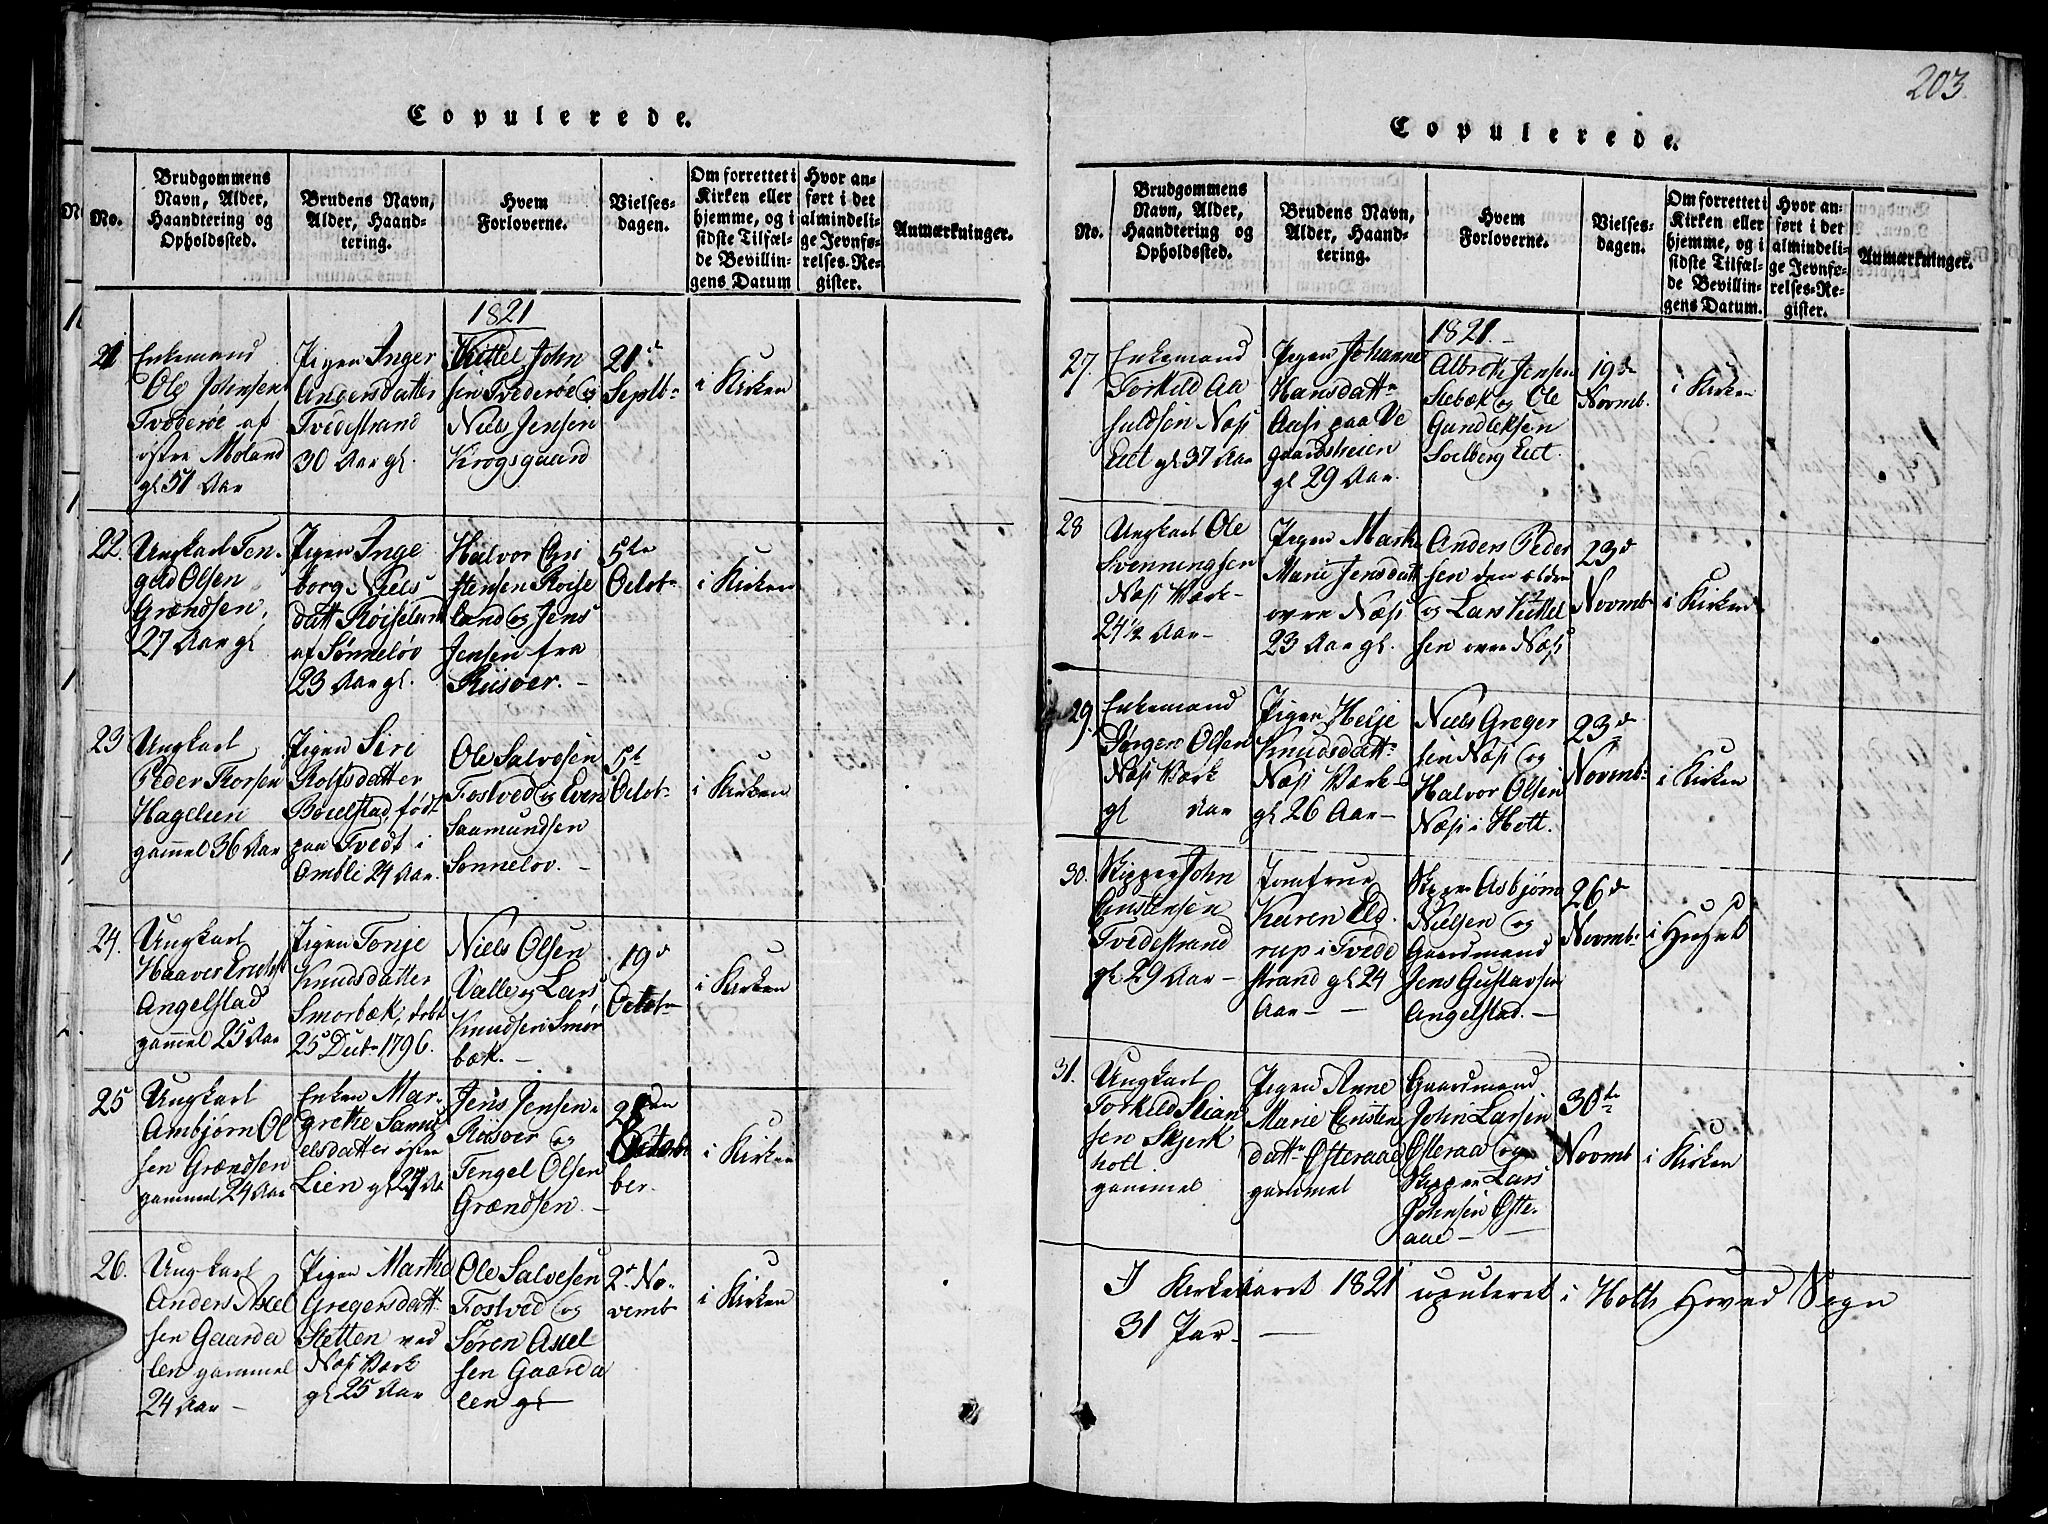 Copulerede.
No.
Brudgommens
Navn, Alder,
Haandtering og
Opholdssted.
Brudens Navn,
Alder, Haand-
tering.
Hvem
Forloverne.
Vielses-
dagen.
Om forrettet i
Kirken eller
hjemme, og i
sidste Tilfæl-
de Bevillin-
gens Datum
Hvor an-
ført i det
almindeli-
ge Jevnfø-
relses-Re-
gister.
Anmærkninger.
1821
21
Enkemand
Ole Johnsen
Tvederøe af
østre Moland
gl 51 Aar
Pigen Inger
Andersdatter
Tvedestrand
30 Aar gl.
Kittel John
sen Tvederøe og
Niels Jensen
Krogsgaard
21de
Septb
i Kirken
22.
Ungkarl Ten-
gel Olsen
Grændsen,
27 Aar gl
Pigen Inge
borg Niels
datt Røiselund
af Sønneløv
23 Aar gl.
Halvor Chri
stensen Røise
land og Jens
Jensen fra
Riisøer. –
5te
Octob
i Kirken
23
Ungkarl
Peder Thorsen
Hageleen
gammel 36 Aar
Pigen Siri
Rolfsdatter
Bouelstad, født
paa Tvedt i
Omblie 24 Aar.
Ole Salvesen
Fostved og Even
Saamundsen
Sønneløv. –
5te
Octob
i Kirken
24.
Ungkarl
Haaver
Angelstad
gammel 25 Aar
Pigen Tonje
Knudsdatter
Smorbæk, døbt
25 Decb 1796.
Niels Olsen
Valle og Lars
Knudsen Smør
bæk. –
19d
Octob
i Kirken
25
Ungkarl
Ambjørn Ol
sen Grændsen
gammel 24 Aar
Enken Mar-
grethe Samu
elsdatter østre
Lien gl 27 Aa
Jens Jensen
Røisøer og
Tengel Olsen
Grændsen. –
Octo
ber.
i Kirken
26.
Ungkarl
Anders Axel
sen Gaarda
len gammel
24 Aar –
Pigen Marthe
Gregersdatt
Sletten ved
Næs Værk
gl 25 Aar
Ole Salvesen
Fostved og
Søren Axel
sen Gaarda
len gl
2d No-
vemb
i Kirken
203.
Copulerede.
No.
Brudgommens
Navn, Alder,
Haandtering og
Opholdssted.
Brudens Navn,
Alder, Haand-
tering.
Hvem
Forloverne.
Vielses-
dagen.
Om forrettet i
Kirken eller
hjemme, og i
sidste Tilfæl-
de Bevillin-
gens Datum.
Hvor an-
ført i det
almindeli-
ge Jevnfø-
relses-Re-
gister.
Anmærkninger.
1821. –
27.
Enkemand
Torkild Aa
suldsen Næs
Eiet gl 37 Aar
Pigen Johanne
Hansdatt
Aas paa Ve
gaardsheien
gl 29 Aar.
Albreth Jensen
Stebæk og Ole
Gundleksen
Solberg Eiet.
19de
Novmb.
i Kirken
28
Ungkarl Ole
Svenningsen
Næs Værk –
24 1/2 Aar –
Pigen Marthe
Marie Jensdatt
øvre Næs
23 Aar gl.
Anders Peder
sen den ældre
og Lars Kittel
sen øvre Næs
23d
Novmb
i Kirken
29.
Enkemand
Jørgen Olsen
Næs Værk
gl Aar
Pigen Helje
Knudsdatt
Næs Værk –
gl 26 Aar –
Niels Greger
sen Næs og
Halvor Olsen
Næs i Holt.
23d
Novmb
i Kirken
30.
Skipper John
Christensen
Tvedestrand
gl 29 Aar –
Jomfrue
Karen Eld
rup i Tvede
strand gl 24
Aar –
Skipper Asbjørn
Nielsen og
Gaardmand
Jens Gustavsen
Angelstad. –
26d
Novmb.
i Huset
31.
Ungkarl
Torkild Stian
sen Skjerk
holt
gammel
Pigen Anne
Marie Christen
datt Østeraae
gammel
Gaardmand
John Larsen
Østeraa og
Skipper Lars
Johnsen Øste-
aae –
30te
Novmb
i Kirken
I Kirkeaaret 1821 copuleret i Holts Hoved Sogn
31 Par –